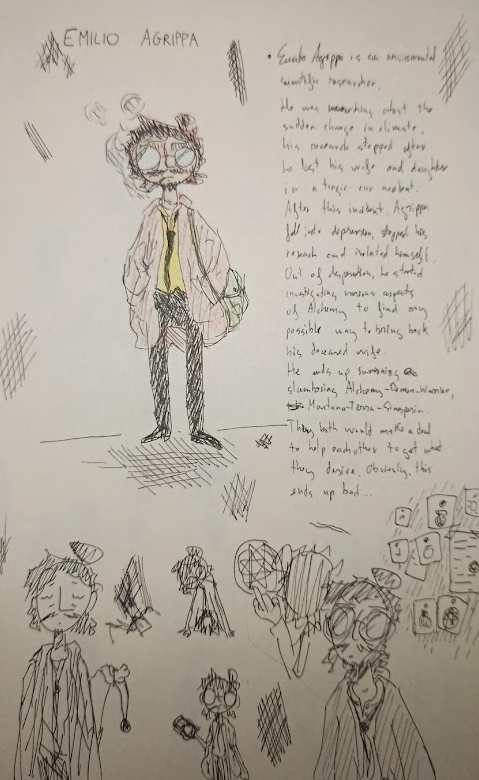 EMILIO AGRIPPA
• Emilio Agrippa is an enviromental
scientific researcher.
He was researching about the
sudden change in climate,
his research stopped after
he lost his wife and daughter
in a tragic car accident.
After this incident, Agrippa
fell into depression, stopped his
research and isolated himself.
Out of desperation, he started
investigating various aspects
of Alchemy to find any
possible way to bring back
his deceased wife.
He ends up summoning
slumbering Alchemy-Demon-Warrior,
They both would make a deal
to help eachother to get what
they desire. Obviously, this
ends up bad...